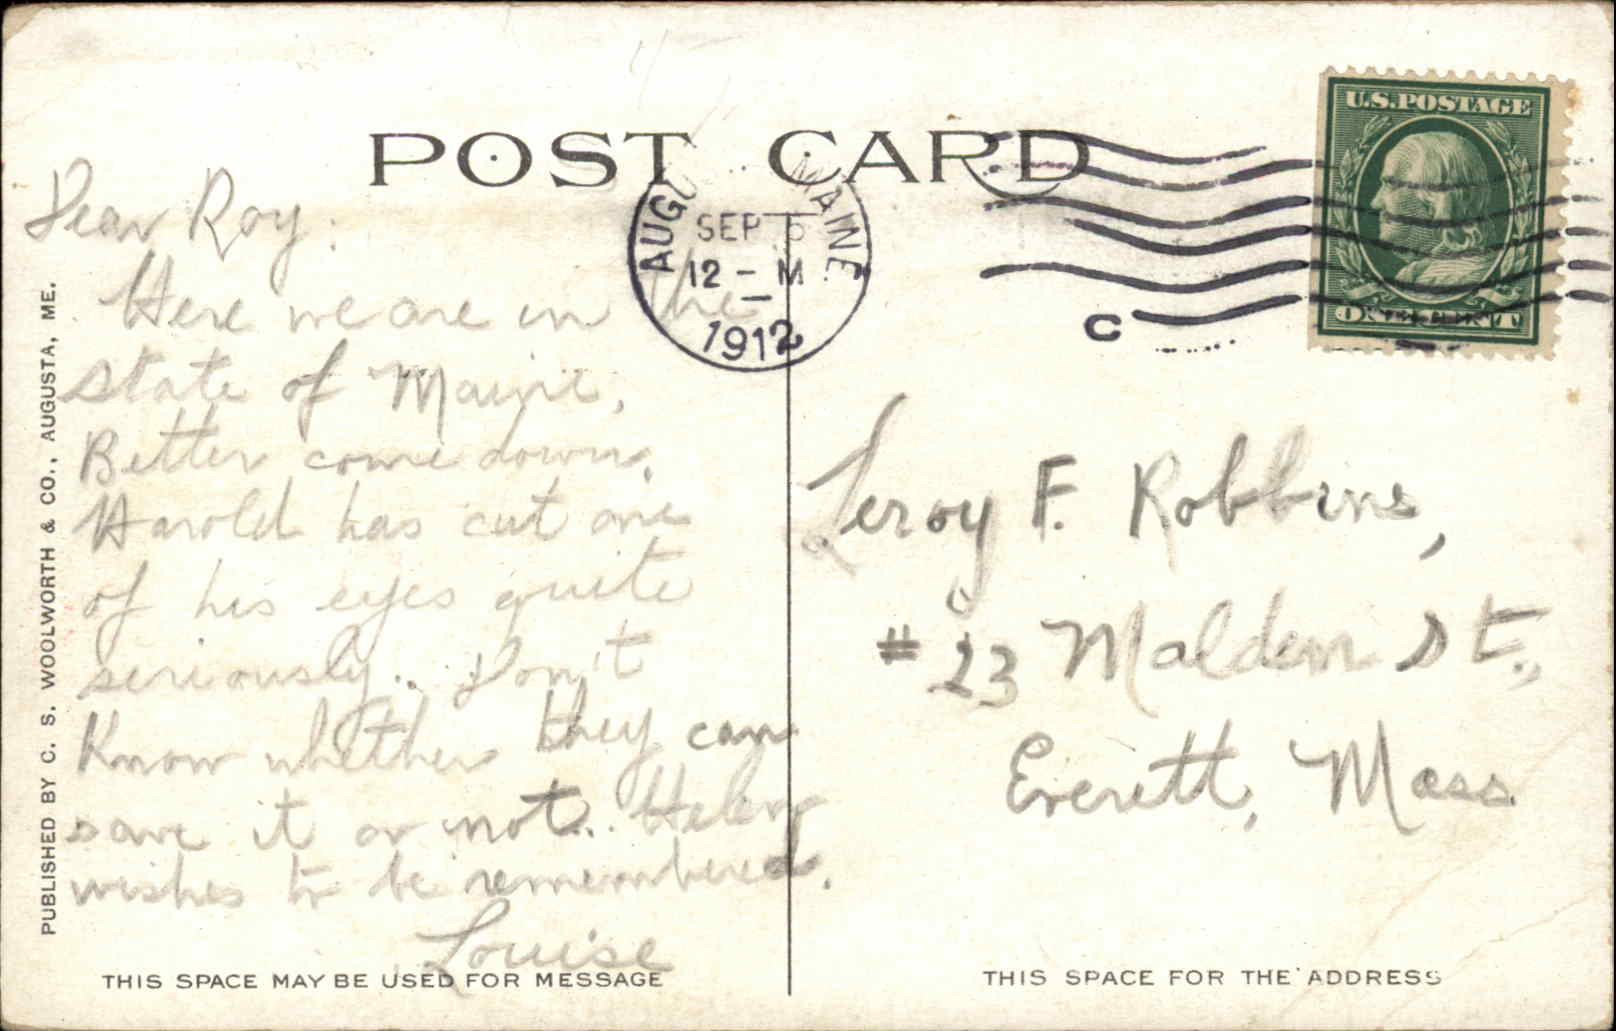 POST CARD
AUGU MAINE
SEP 5
12 - M
1912
C
U.S. POSTAGE
ONE CENT
Dear Roy:
Here we are in the
State of Maine,
Better come down.
Harold has cut one
of his eyes quite
seriously. Don't
Know whether they can
save it or not. Helen
wishes to be remembered.
Louise
Leroy F. Robbins,
# 23 Malden St.,
Everett, Mass
THIS SPACE MAY BE USED FOR MESSAGE
THIS SPACE FOR THE ADDRESS
PUBLISHED BY C. S. WOOLWORTH & CO., AUGUSTA, ME.